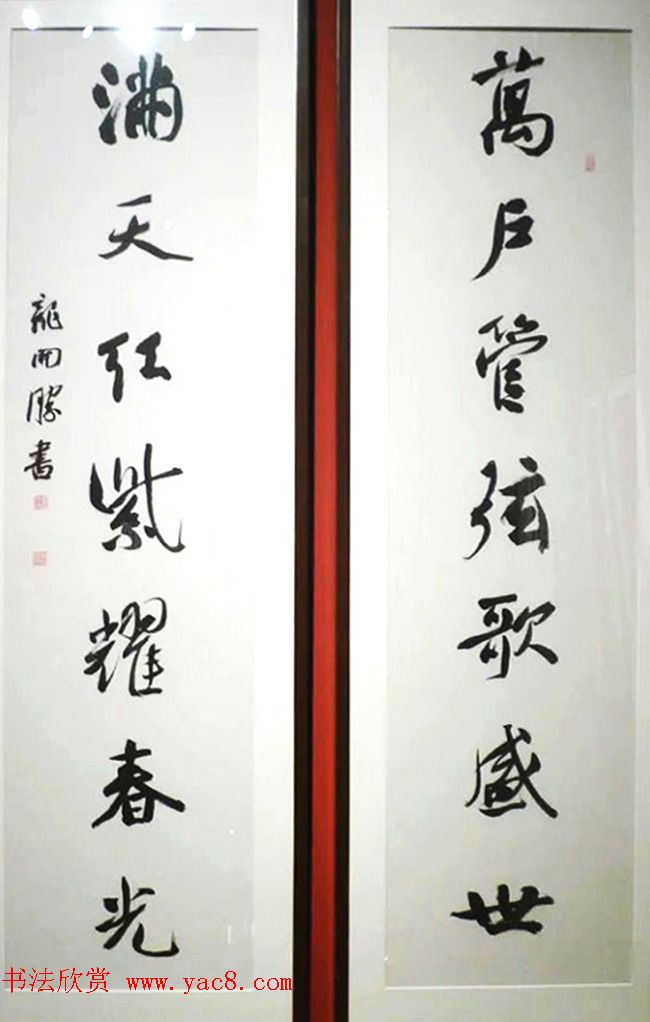 萬戶管弦歌盛世
滿天紅紫耀春光
龍開勝書
书法欣赏 www.yac8.com